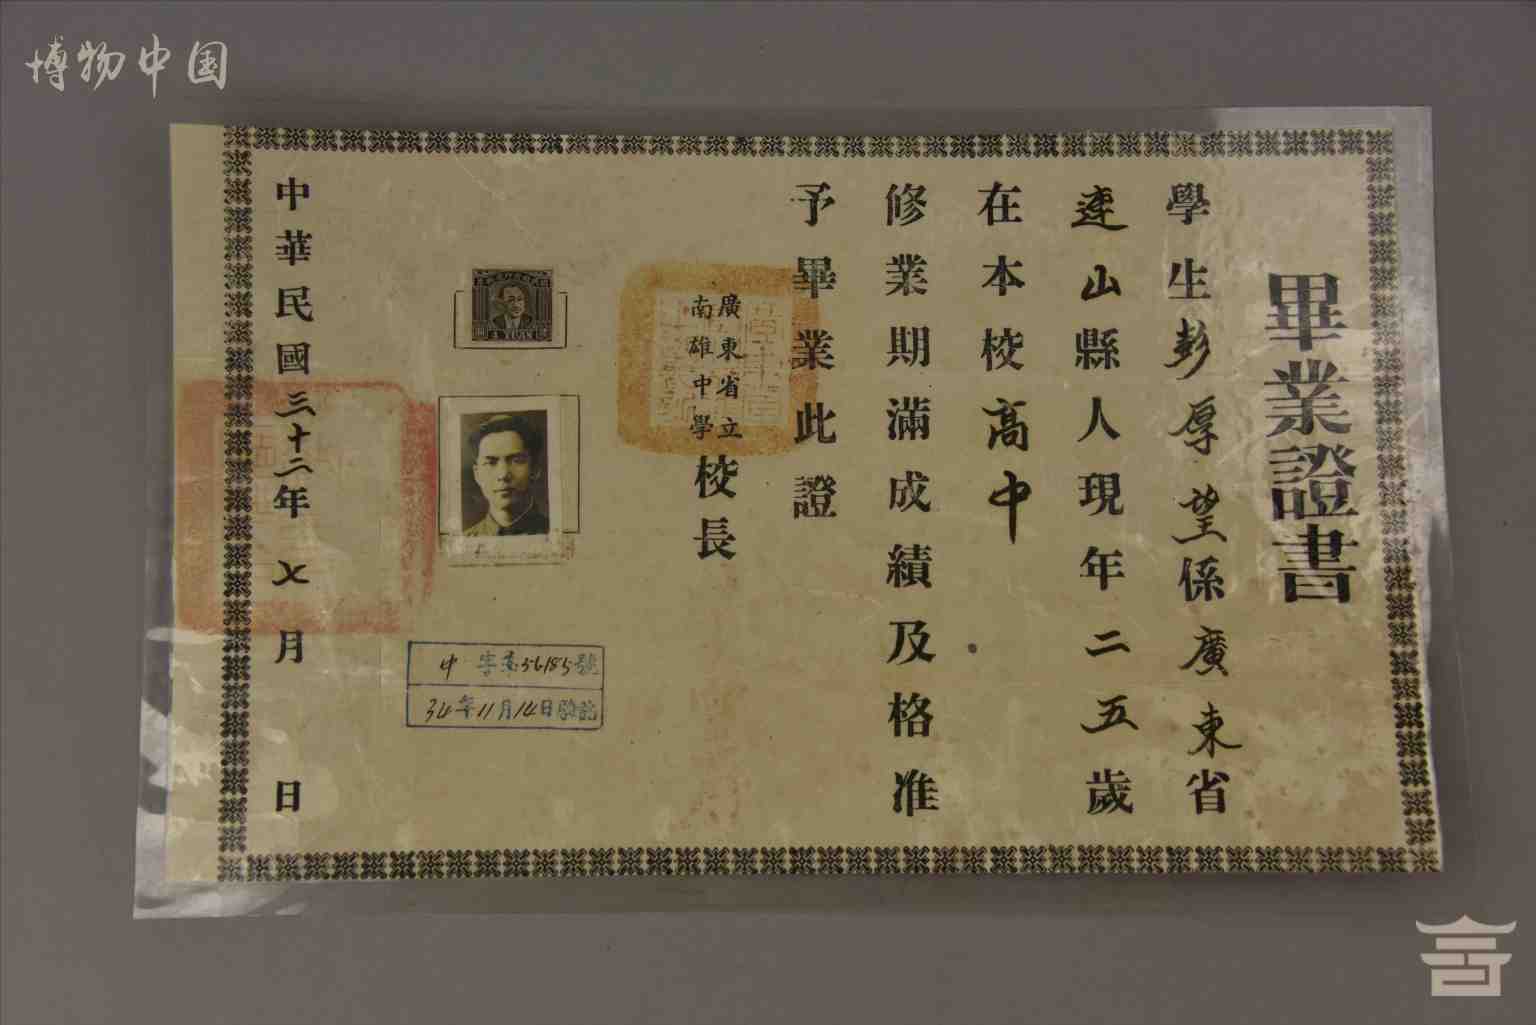 博物中国
畢業證書
學生彭厚望係廣東省
連山縣人現年二五歲
在本校高中
修業期滿成績及格准
予畢業此證
廣東省立
南雄中學
校長
4 YUAN
中字第56185號
34年11月14日驗訖
中華民國三十二年七月 日